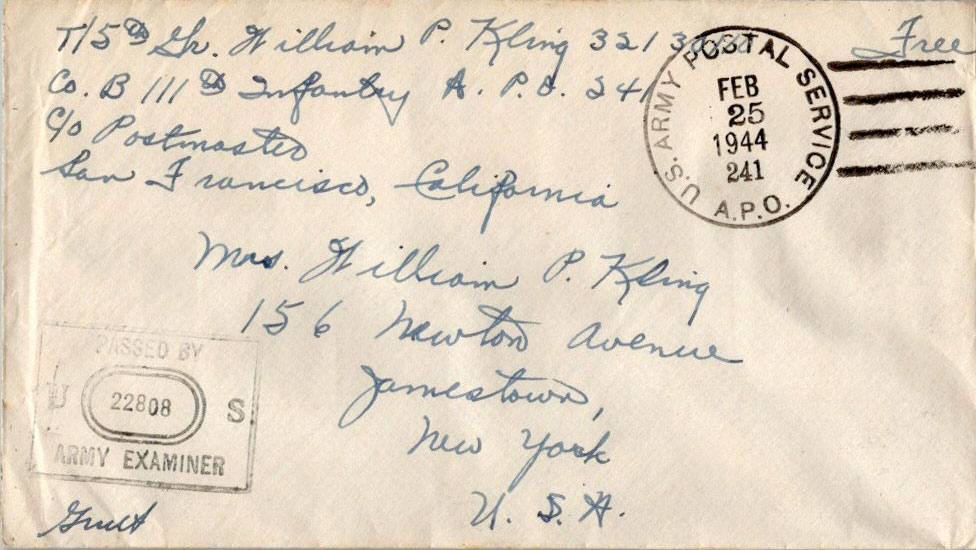 T/5th Gr. William P. Kling 3213
Free
Co. B 111th Infantry A. P. O. 241
c/o Postmaster
San Francisco, California
U.S. ARMY POSTAL SERVICE
FEB
25
1944
241
A.P.O.
Mrs. William P. Kling
156 Newton Avenue
Jamestown,
New York
U. S. A.
PASSED BY
U 22808 S
ARMY EXAMINER